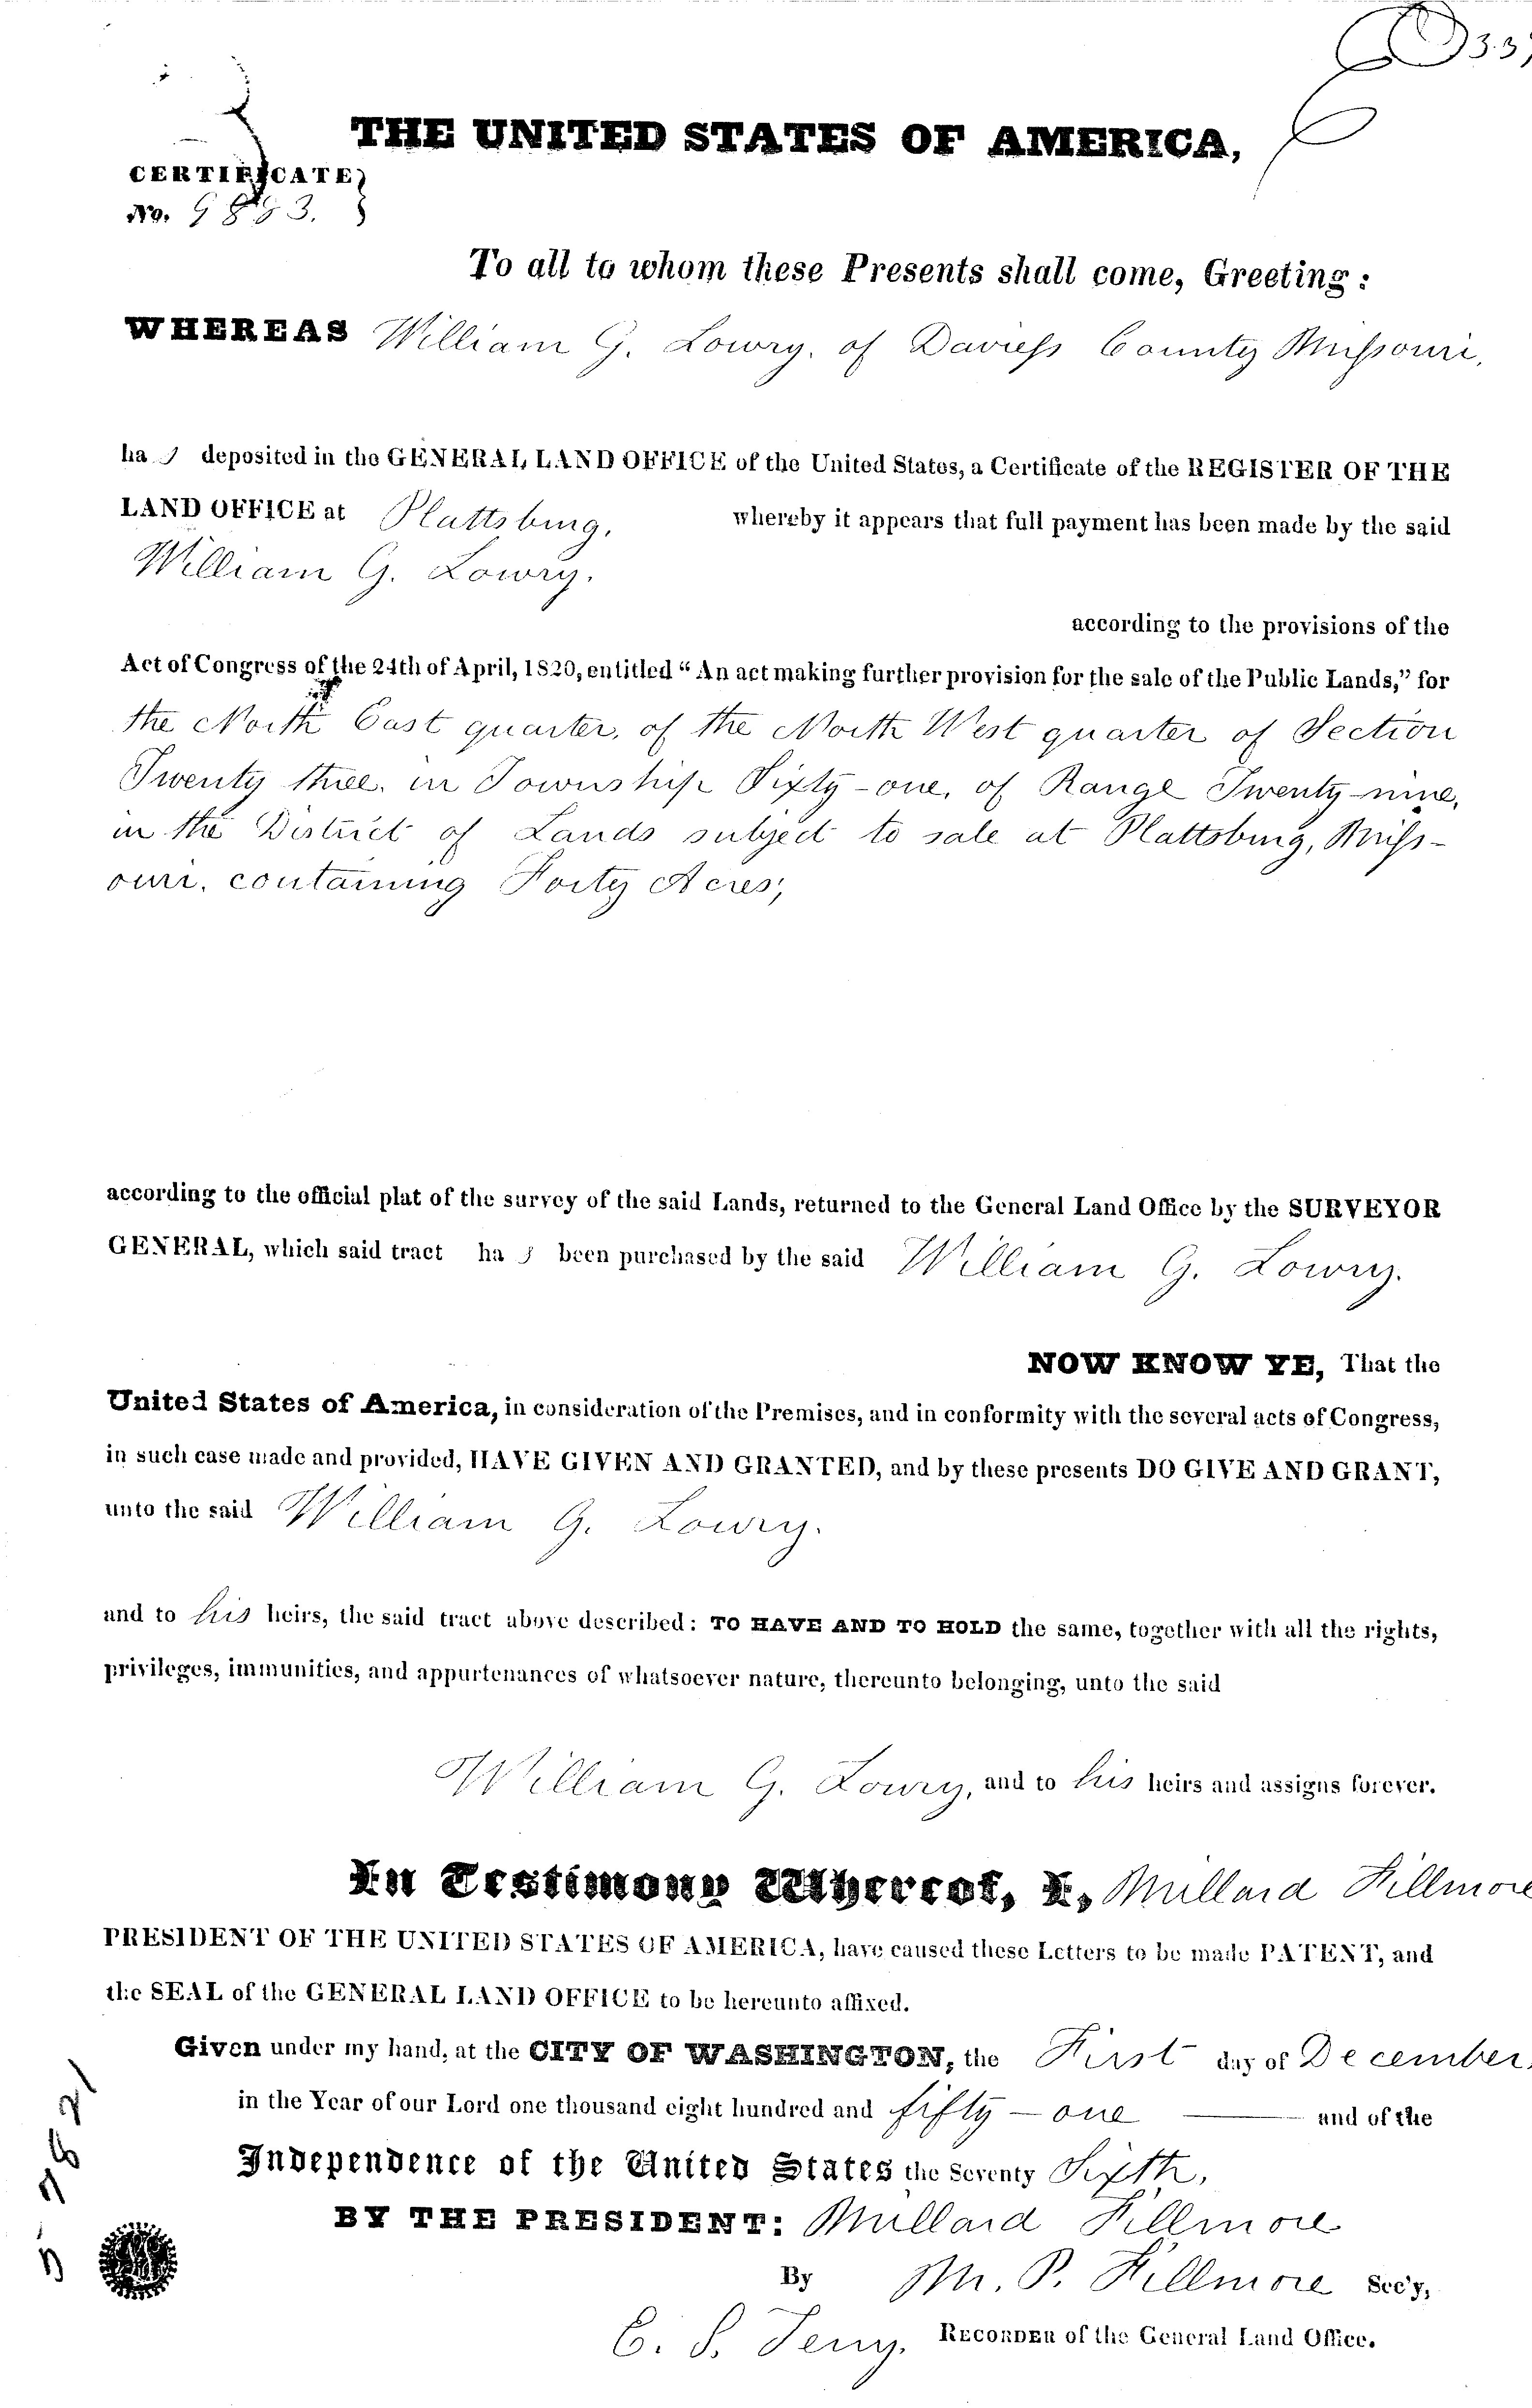 THE UNITED STATES OF AMERICA,
CERTIFICATE
No. 9893.
To all to whom these Presents shall come, Greeting:
WHEREAS William G. Lowry, of Daviess County Missouri,
has deposited in the GENERAL LAND OFFICE of the United States, a Certificate of the REGISTER OF THE
LAND OFFICE at Plattsburg, whereby it appears that full payment has been made by the said
William G. Lowry.
according to the provisions of the
Act of Congress of the 24th of April, 1820, entitled “An act making further provision for the sale of the Public Lands,” for
the North East quarter, of the North West quarter of Section
Twenty three, in Township Sixty-one, of Range Twenty-nine,
in the District of Lands subject to sale at Plattsburg, Miss-
ouri, containing Forty Acres,
according to the official plat of the survey of the said Lands, returned to the General Land Office by the SURVEYOR
GENERAL, which said tract has been purchased by the said William G. Lowry.
NOW KNOW YE, That the
United States of America, in consideration of the Premises, and in conformity with the several acts of Congress,
in such case made and provided, HAVE GIVEN AND GRANTED, and by these presents DO GIVE AND GRANT,
unto the said William G. Lowry.
and to his heirs, the said tract above described: TO HAVE AND TO HOLD the same, together with all the rights,
privileges, immunities, and appurtenances of whatsoever nature, thereunto belonging, unto the said
William G. Lowry, and to his heirs and assigns forever.
In Testimony Whereof, I, Millard Fillmore
PRESIDENT OF THE UNITED STATES OF AMERICA, have caused these Letters to be made PATENT, and
the SEAL of the GENERAL LAND OFFICE to be hereunto affixed.
Given under my hand, at the CITY OF WASHINGTON, the First day of December,
in the Year of our Lord one thousand eight hundred and fifty-one and of the
Independence of the United States the Seventy Sixth,
BY THE PRESIDENT: Millard Fillmore
By M. P. Fillmore Sec'y,
E. S. Terry, RECORDER of the General Land Office.